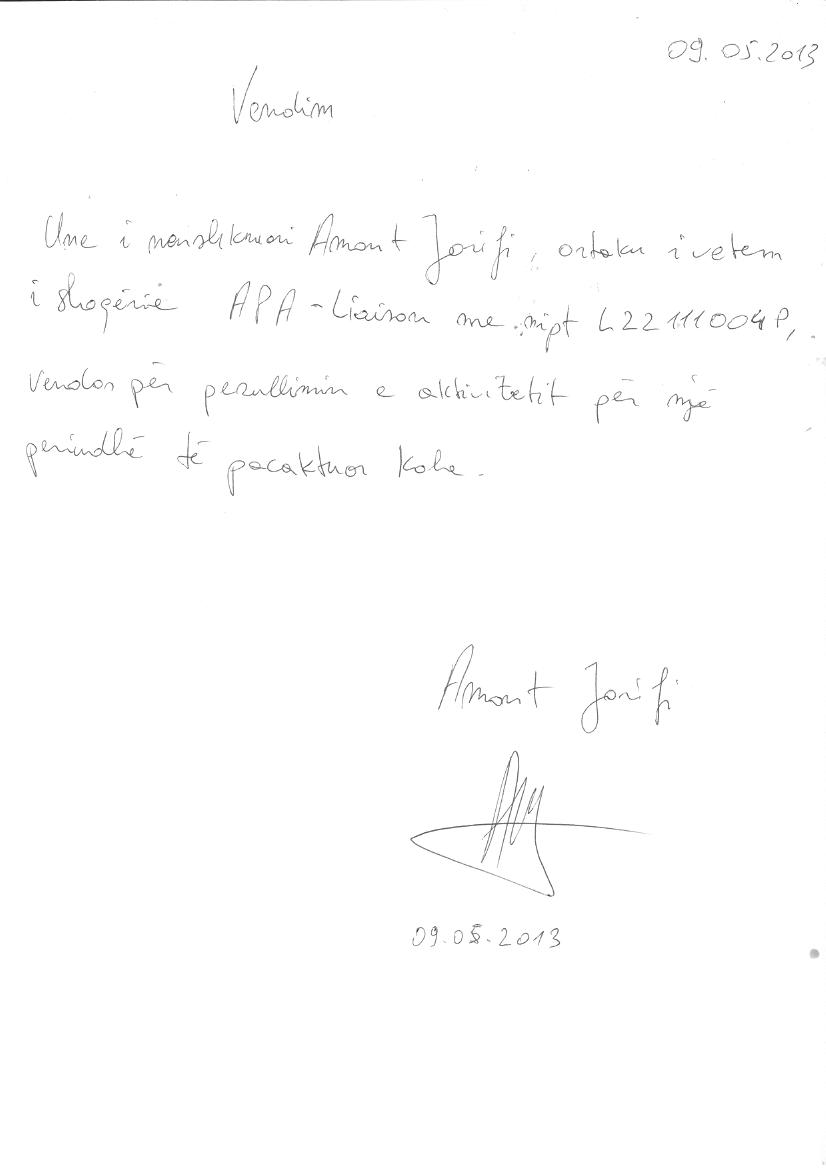 09.05.2013
Vendim
Une i nenshkruari Amant Josifi, ortaku i vetem
i shoqërisë APA - Liaison me nipt L22111004P,
vendos për pezullimin e aktivitetit për një
periudhë të pacaktuar kohe.
Amant Josifi
09.05.2013